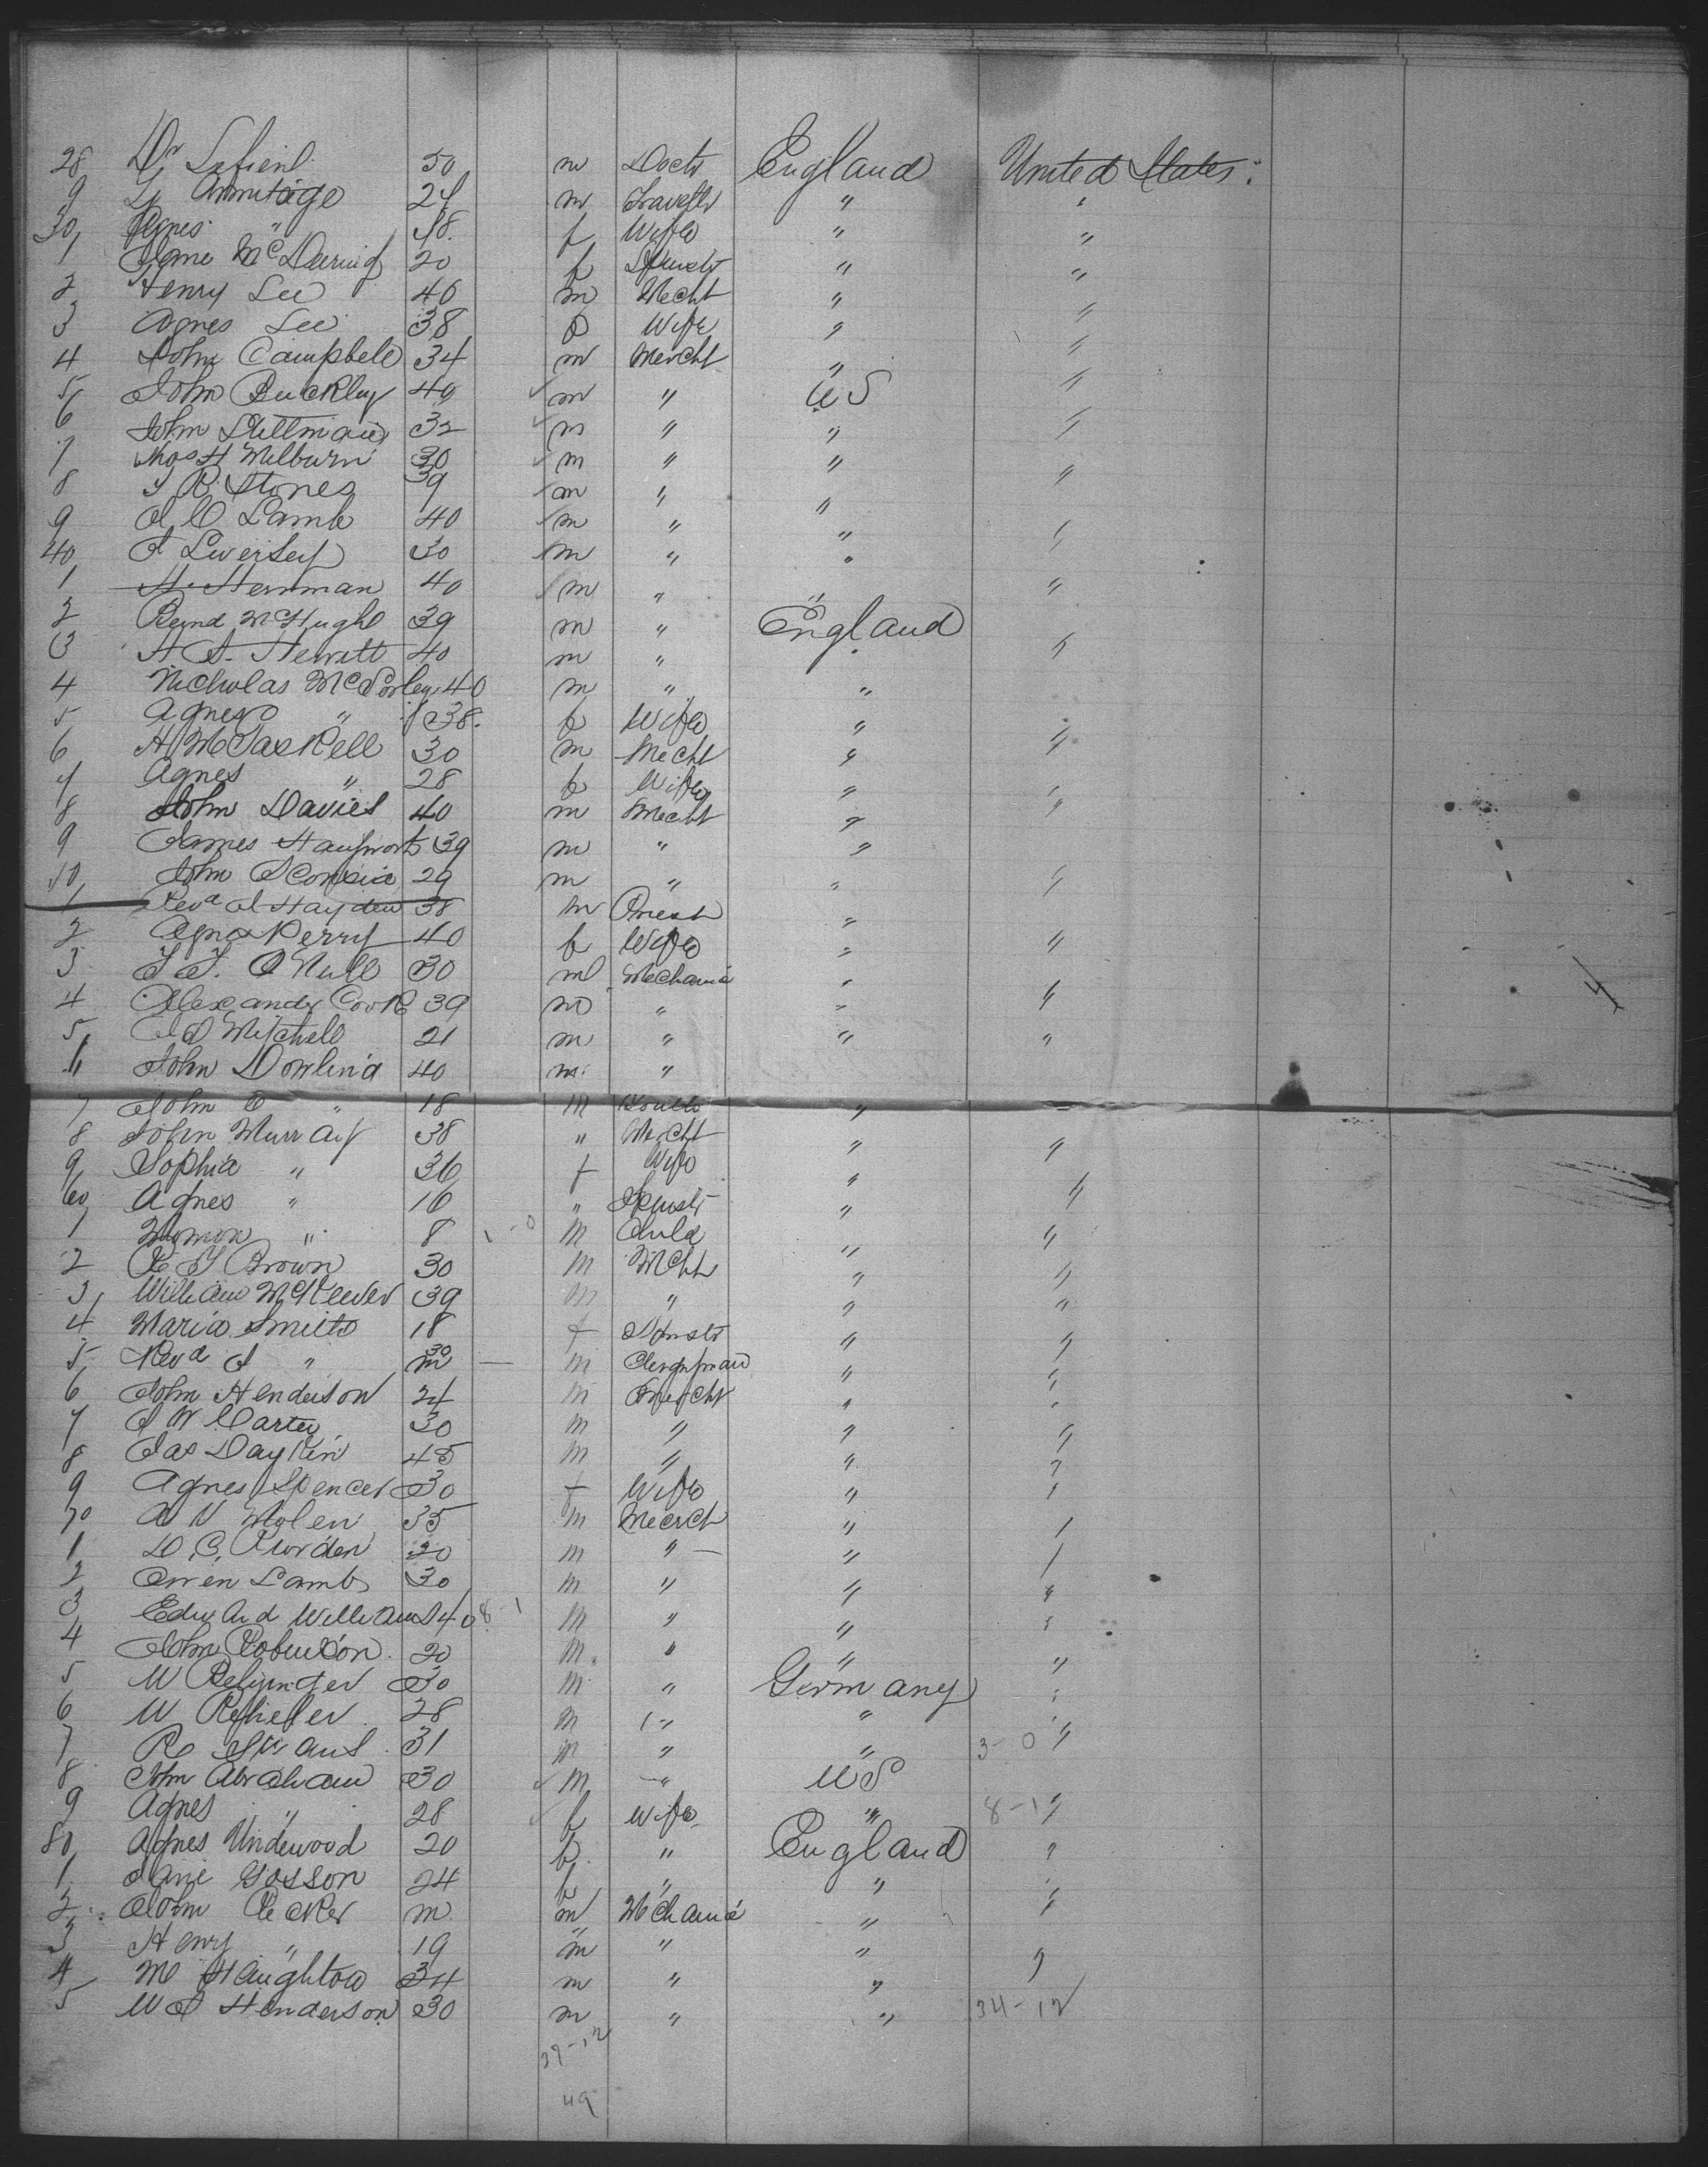 28 Dr 50 m Doctr England United States
9 Armitage 24 m Travellr " "
30 Agnes " 18 f Wife " "
1 Jane Mc 20 f Spinstr " "
2 Henry Lee 40 m Mecht " "
3 Agnes Lee 38 f Wife " "
4 John Campbell 34 m Mercht " "
5 John Buckley 40 m " U S "
6 John 32 m " " "
7 Thos H Milburn 30 m " "
8 J R Stones 39 m " " "
9 J C Lamb 40 m " "
40 J Liversey 30 m " " "
1 H. Herrman 40 m " " "
2 Bernd McHugh 39 m " England
3 H S. Hewitt 40 m " "
4 Nicholas McSorley 40 m " "
5 Agnes " f 38. f Wife " "
6 H McTaskell 30 m Mecht " "
7 Agnes " 28 f Wife " "
8 John Davies 40 m Mecht " "
9 James 39 m " "
50 John 29 m " " "
1 Revd J Hayden 38 m Priest "
2 Agnes Perry 40 f Wife " "
3 J. O Neill 30 m Mechanic "
4 Alexander Cook 39 m " " "
5 J D Mitchell 21 m " " "
6 John Dowling 40 m "
7 John E " 18 m "
8 John Murray 38 " Mercht " "
9 Sophia " 36 f Wife "
60 Agnes " 16 " Spinstr " "
1 " 8 1-0 m Child "
2 Brown 30 m Mcht " "
3 William McKeever 39 m " " "
4 Maria Smith 18 f Spinstr " "
5 Revd J " 30 m m Clergyman " "
6 John Henderson 24 m Mercht " "
7 J W Carter 30 m " " "
8 Jas Daykin 45 m " " "
9 Agnes Spencer 30 f Wife " "
70 A V Molen 35 m Meerch "
1 D. C. Rurden 20 m " " "
2 Owen Lamb 30 m " " "
3 Edward Williams 40 8-1 m " " "
4 John Robinson 20 m " " "
5 W 30 m " Germany "
6 W 28 m " "
7 R 31 m " " 3-0 "
8 John Abraham 30 m " U S
9 Agnes " 28 f Wife " 8-1 "
80 Agnes Undewood 20 f " England "
1 Jane Gosson 24 f " "
2 John Pecker m m Mechanic " "
3 Henry " 19 m " "
4 M Haughton 34 m " " "
5 W J Henderson 30 m " " 34-12
37-12
49